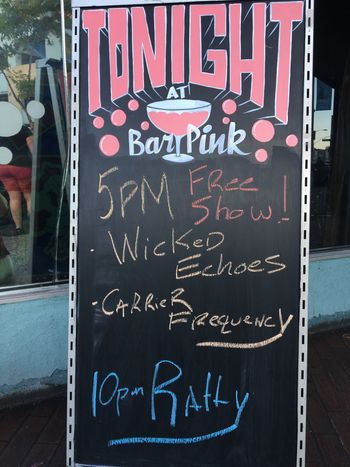 TONIGHT
AT
Bar Pink
5PM FREE
Show!
· Wicked
Echoes
· CARRiER
FREQUENCY
10pm RAtty